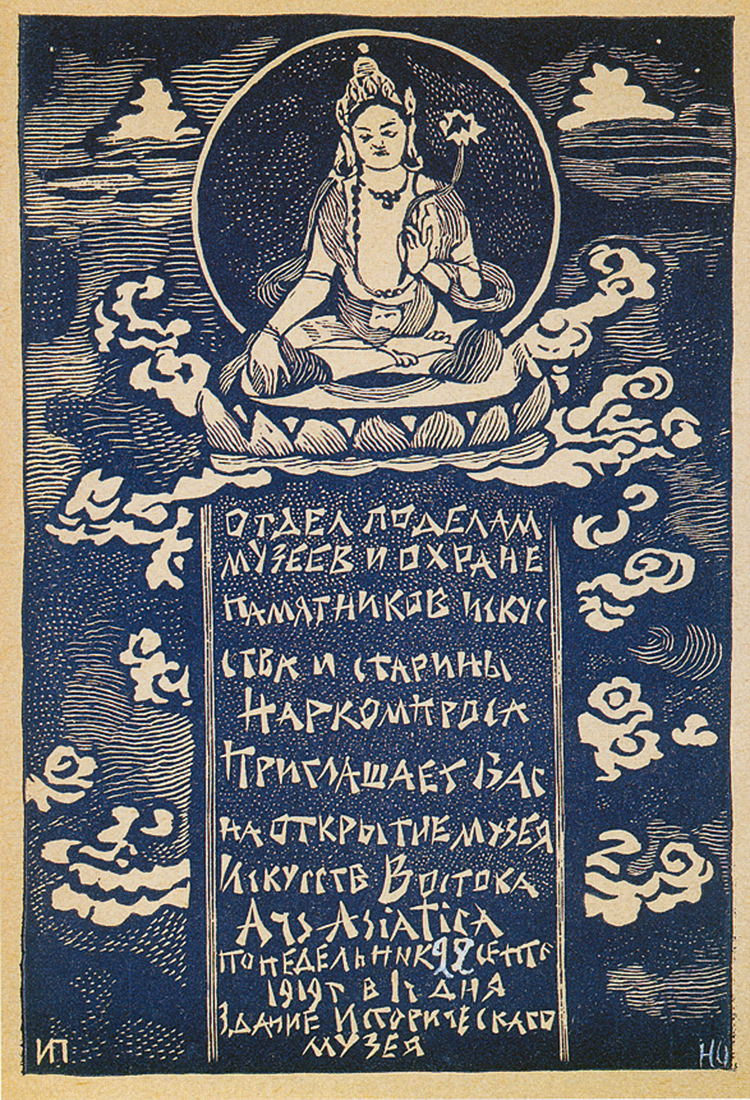 ОТДЕЛ ПО ДЕЛАМ
МУЗЕЕВ И ОХРАНЕ
ПАМЯТНИКОВ ИСКУС
СТВА И СТАРИНЫ
НАРКОМПРОСА
ПРИГЛАШАЕТ ВАС
НА ОТКРЫТИЕ МУЗЕЯ
ИСКУССТВ ВОСТОКА
ARS ASIATICA
ПОНЕДЕЛЬНИК 22 СЕНТ
1919 Г В 1 Ч ДНЯ
ЗДАНИЕ ИСТОРИЧЕСКАГО
МУЗЕЯ
ИП